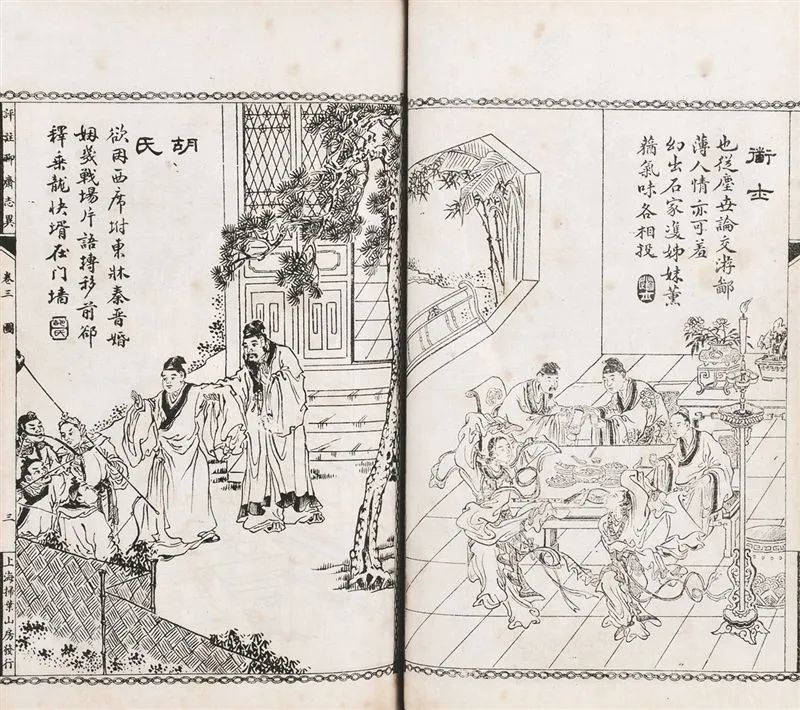 衜士
也從塵世論交游鄙
薄人情亦可羞
幻出石家雙姊妹薰
蕕氣味各相投
胡氏
欲因西席坿東牀秦晉婚
姻幾戰場片語轉移前郤
釋乘龍快壻在门墻
評註聊齋志異
卷三
圖
三
上海掃葉山房發行